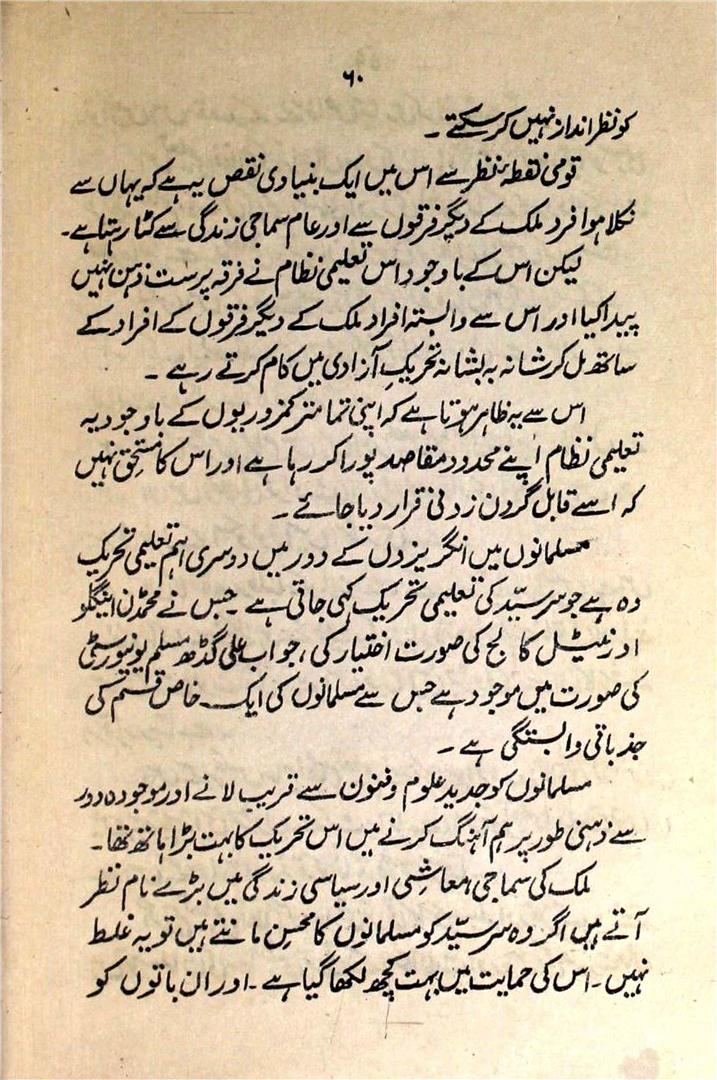 ۶۰
کو نظر انداز نہیں کر سکتے ۔
قومی نقطۂ نظر سے اس میں ایک بنیادی نقص یہ ہے کہ یہاں سے
نکلا ہوا فرد ملک کے دیگر فرقوں سے اور عام سماجی زندگی سے کٹا رہتا ہے۔
لیکن اس کے باوجود اس تعلیمی نظام نے فرقہ پرست ذہن نہیں
پیدا کیا اور اس سے وابستہ افراد ملک کے دیگر فرقوں کے افراد کے
ساتھ مل کر شانہ بہ بشانہ تحریکِ آزادی میں کام کرتے رہے ۔
اس سے یہ ظاہر ہوتا ہے کہ اپنی تمام تر کمزوریوں کے باوجود یہ
تعلیمی نظام اپنے محدود مقاصد پورا کر رہا ہے اور اس کا مستحق نہیں
کہ اسے قابل گردن زدنی قرار دیا جائے ۔
مسلمانوں میں انگریزوں کے دور میں دوسری اہم تعلیمی تحریک
وہ ہے جو سرسیّد کی تعلیمی تحریک کہی جاتی ہے ۔ جس نے محمڈن اینگلو
اورنٹیل کالج کی صورت اختیار کی، جو اب علی گڈھ مسلم یونیورسٹی
کی صورت میں موجود ہے جس سے مسلمانوں کی ایک خاص قسم کی
جذباتی وابستگی ہے ۔
مسلمانوں کو جدید علوم و فنون سے قریب لانے اور موجودہ دور
سے ذہنی طور پر ہم آہنگ کرنے میں اس تحریک کا بہت بڑا ہاتھ تھا۔
ملک کی سماجی، معاشی اور سیاسی زندگی میں بڑے نام نظر
آتے ہیں اگر وہ سرسیّد کو مسلمانوں کا محسن مانتے ہیں تو یہ غلط
نہیں۔ اس کی حمایت میں بہت کچھ لکھا گیا ہے ۔ اور ان باتوں کو